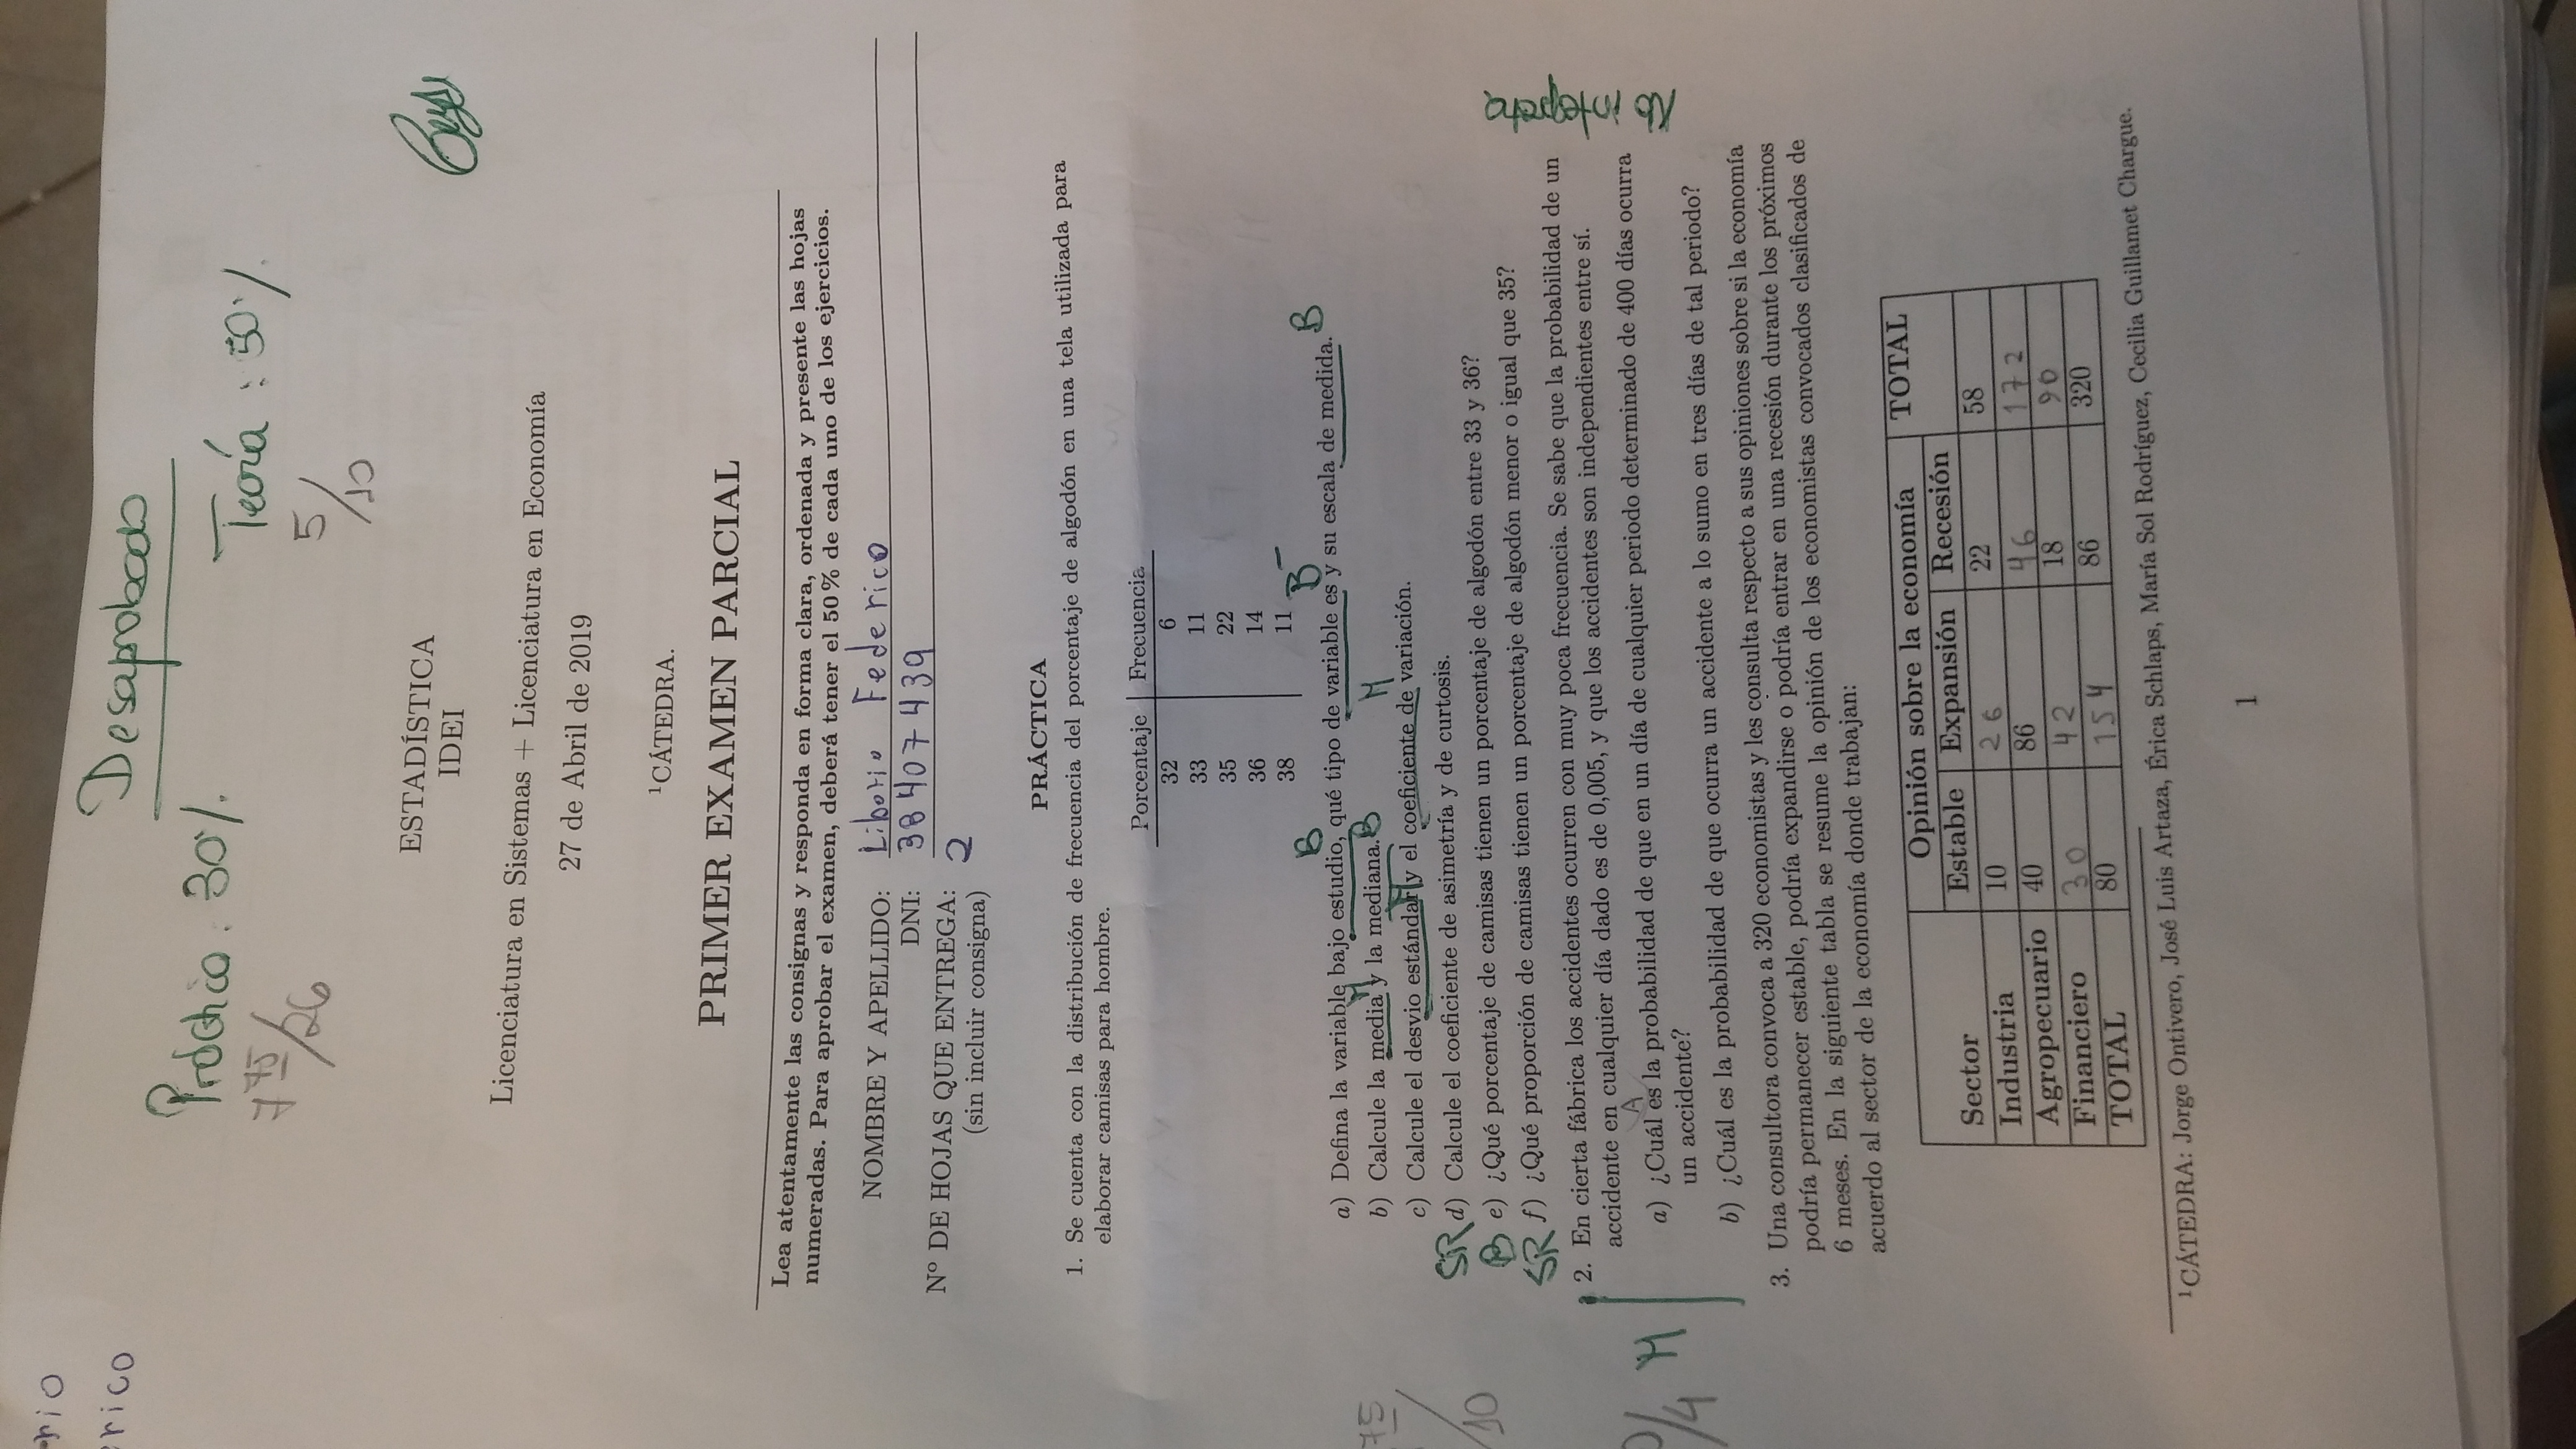 rio
erico
Desaprobado
Práctico: 30%.
Teoría: 50%.
7 75/26
5/10
ESTADÍSTICA
IDEI
Licenciatura en Sistemas + Licenciatura en Economía
27 de Abril de 2019
¹CÁTEDRA.
PRIMER EXAMEN PARCIAL
Lea atentamente las consignas y responda en forma clara, ordenada y presente las hojas
numeradas. Para aprobar el examen, deberá tener el 50% de cada uno de los ejercicios.
NOMBRE Y APELLIDO: Liborio Federico
DNI: 38407439
Nº DE HOJAS QUE ENTREGA: 2
(sin incluir consigna)
PRÁCTICA
1. Se cuenta con la distribución de frecuencia del porcentaje de algodón en una tela utilizada para
elaborar camisas para hombre.
Porcentaje Frecuencia
32 6
33 11
35 22
36 14
38 11
B B- B
a) Defina la variable bajo estudio, qué tipo de variable es y su escala de medida.
b) Calcule la media M y la mediana. B
M M
c) Calcule el desvio estándar y el coeficiente de variación.
SR d) Calcule el coeficiente de asimetría y de curtosis.
75/10
B e) ¿Qué porcentaje de camisas tienen un porcentaje de algodón entre 33 y 36?
SR f) ¿Qué proporción de camisas tienen un porcentaje de algodón menor o igual que 35?
2. En cierta fábrica los accidentes ocurren con muy poca frecuencia. Se sabe que la probabilidad de un
accidente en cualquier día dado es de 0,005, y que los accidentes son independientes entre sí.
A
a) ¿Cuál es la probabilidad de que en un día de cualquier periodo determinado de 400 días ocurra
un accidente?
0/4 M
b) ¿Cuál es la probabilidad de que ocurra un accidente a lo sumo en tres días de tal periodo?
3. Una consultora convoca a 320 economistas y les consulta respecto a sus opiniones sobre si la economía
podría permanecer estable, podría expandirse o podría entrar en una recesión durante los próximos
6 meses. En la siguiente tabla se resume la opinión de los economistas convocados clasificados de
acuerdo al sector de la economía donde trabajan:
Opinión sobre la economía TOTAL
Sector Estable Expansión Recesión
Industria 10 26 22 58
Agropecuario 40 86 46 172
Financiero 30 42 18 90
TOTAL 80 154 86 320
¹CÁTEDRA: Jorge Ontivero, José Luis Artaza, Érica Schlaps, María Sol Rodríguez, Cecilia Guillamet Chargue.
1